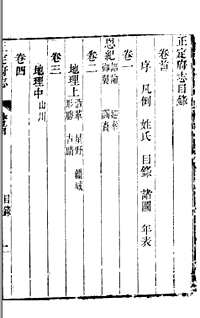 正定府志目錄
卷首
序 凡例 姓氏 目錄 諸圖 年表
卷一
恩紀
卷二
地理上 星野 疆域 形勝 古蹟
卷三
地理中 山川
卷四
目錄
一